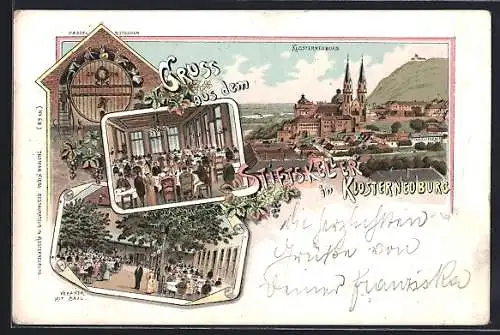 KLOSTERNEUBURG
GRUSS
aus dem
STIFTSKELLER
in KLOSTERNEUBURG
VERANDA
MIT SAAL
Die herzlichsten
Grüße von
Deiner Franziska